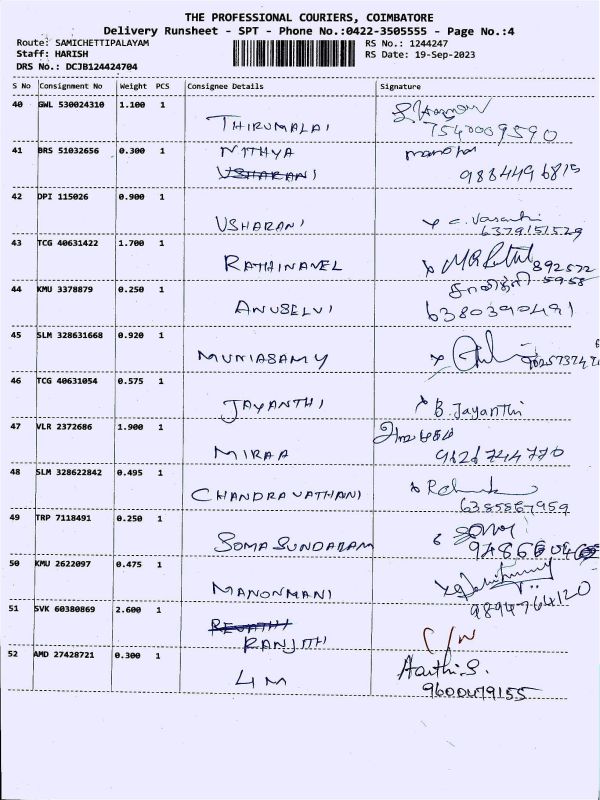 THE PROFESSIONAL COURIERS, COIMBATORE
Delivery Runsheet - SPT - Phone No.:0422-3505555 - Page No.:4
Route: SAMICHETTIPALAYAM
RS No.: 1244247
Staff: HARISH
RS Date: 19-Sep-2023
DRS No.: DCJB124424704
S No Consignment No Weight PCS Consignee Details Signature
40 GWL 530024310 1.100 1
THIRUMALAI
7540009590
41 BRS 51032656 0.300 1
NITHYA
USHARANI
42 DPI 115026 0.900 1
USHARANI
6379151529
43 TCG 40631422 1.700 1
RATHINAVEL
44 KMU 3378879 0.250 1
ANUSELVI
6380390491
45 SLM 328631668 0.920 1
MUNIASAMY
46 TCG 40631054 0.575 1
JAYANTHI B. Jayanthi
47 VLR 2372686 1.900 1
MIRAA
48 SLM 328622842 0.495 1
CHANDRAVATHANI
6385867959
49 TRP 7118491 0.250 1
SOMASUNDARAM
50 KMU 2622097 0.475 1
MANONMANI
9894764120
51 SVK 60380869 2.600 1
REVATHI
RANJITH
52 AMD 27428721 0.300 1
4M
Aarthi.S.
9600479155